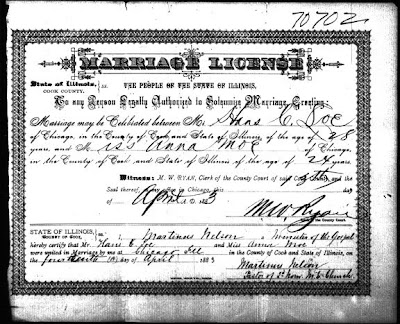 70702
MARRIAGE LICENSE
State of Illinois,
COOK COUNTY.
SS.
THE PEOPLE OF THE STATE OF ILLINOIS,
To any Person Legally Authorized to Solemnize Marriage, Greeting:
Marriage may be Celebrated between Mr. Hans C. Doe
of Chicago, in the County of Cook and State of Illinois, of the age of 28
years, and Miss Anna Moe of Chicago,
in the County of Cook and State of Illinois, of the age of 24 years.
Witness: M. W. RYAN, Clerk of the County Court of said
Said thereof, at Chicago, this
April 1883
M W Ryan
of the County Court.
STATE OF ILLINOIS,
County of Cook, SS. I, Martinus Nelson a Minister of the Gospel
hereby certify that Mr. Hans and Miss Anna Moe
were united in Marriage by me at Chicago Ill in the County of Cook and State of Illinois, on
the day of April 1883
Martinus Nelson
Pastor of 1st Norw. M. E. Church